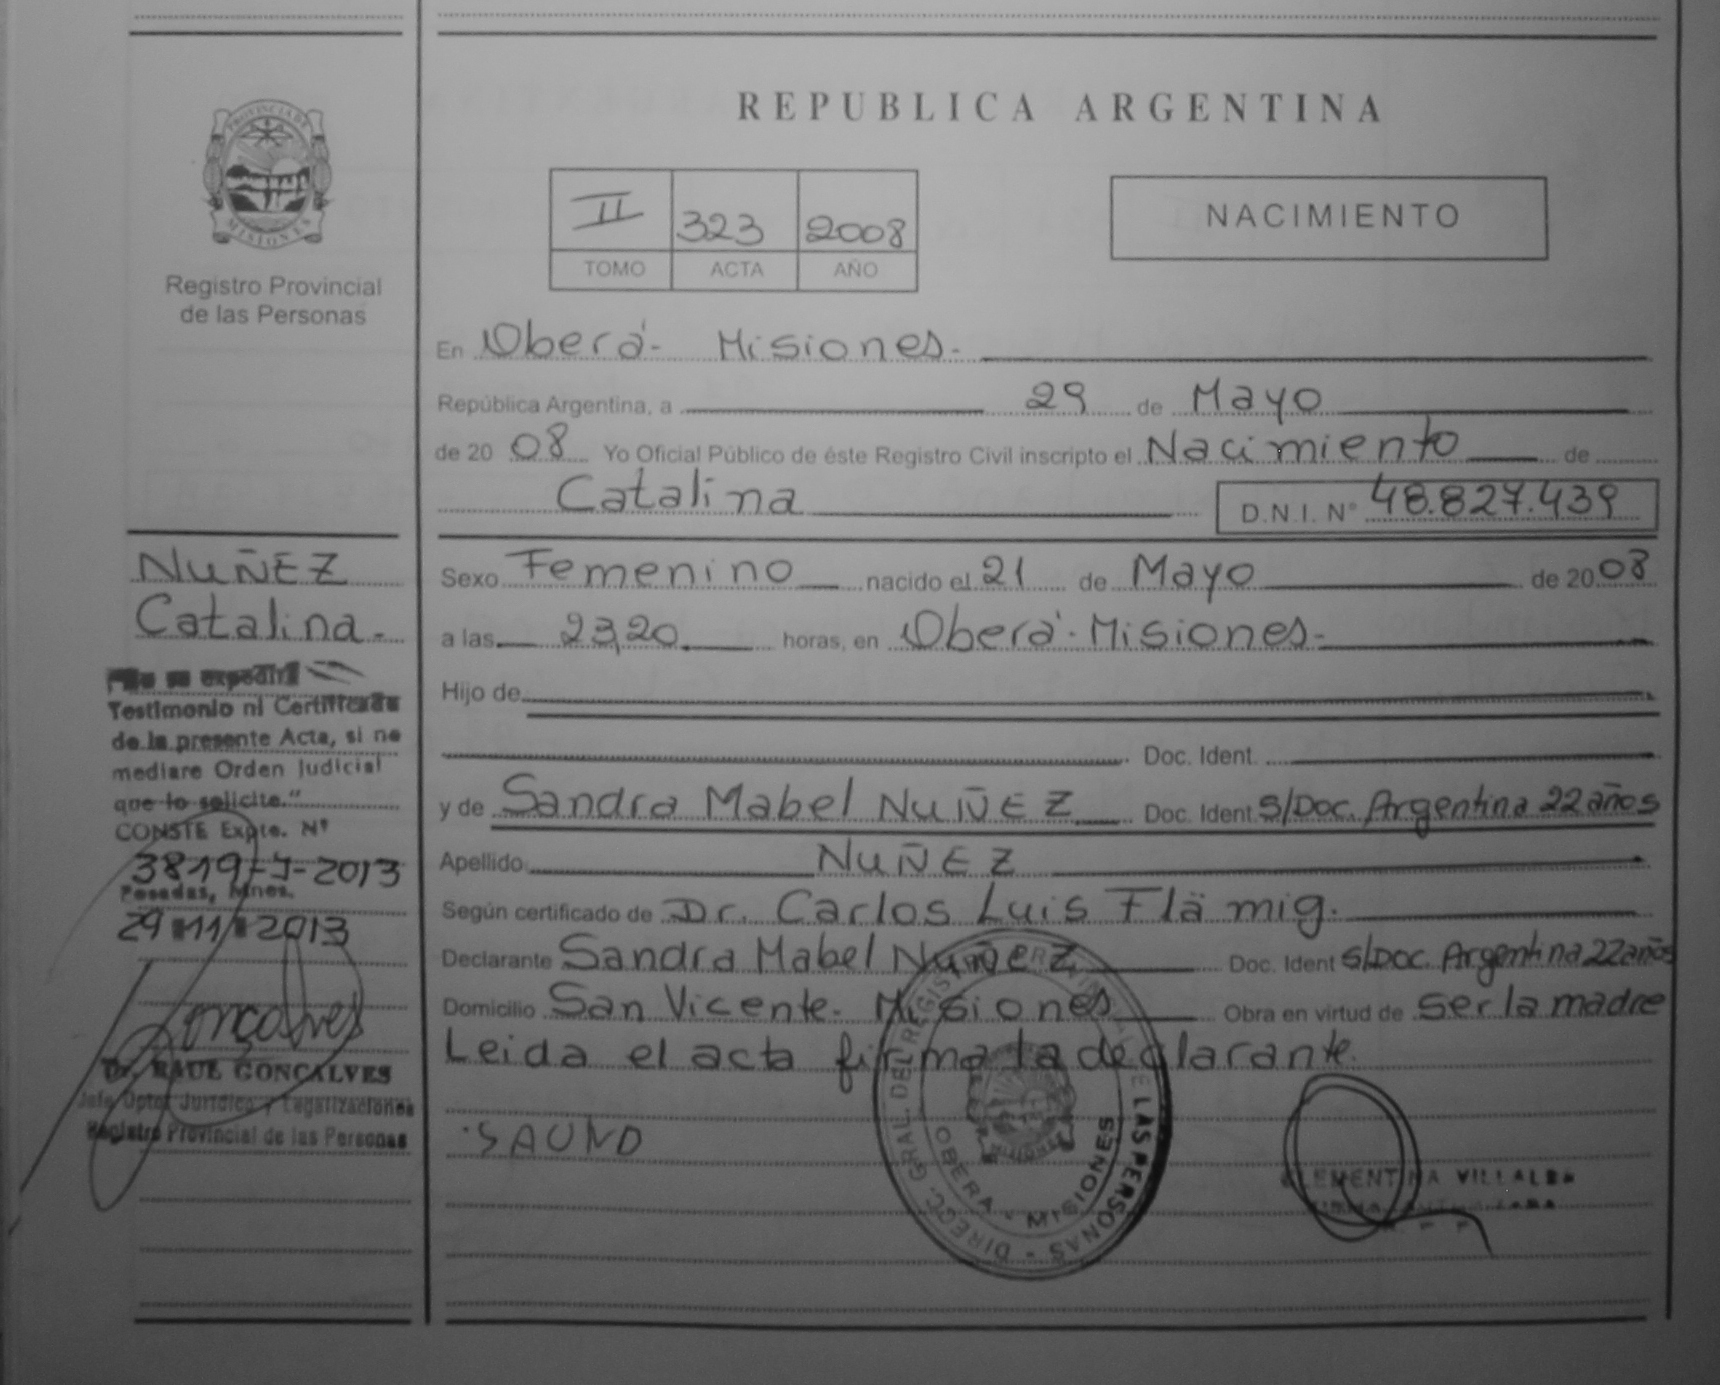 REPUBLICA ARGENTINA
PROVINCIA DE
MISIONES
Registro Provincial
de las Personas
II 323 2008
TOMO ACTA AÑO
NACIMIENTO
En Oberá- Misiones-
República Argentina, a 29 de Mayo
de 20 08 Yo Oficial Público de éste Registro Civil inscripto el Nacimiento de
Catalina D.N.I. N° 48.827.439
Sexo Femenino nacido el 21 de Mayo de 20 08
a las 23,20 horas, en Oberá-Misiones-
Hijo de
Doc. Ident.
y de Sandra Mabel NUÑEZ Doc. Ident S/Doc. Argentina 22 años
Apellido NUÑEZ
Según certificado de Dr. Carlos Luis Flämig.
Declarante Sandra Mabel NuñeZ Doc. Ident S/Doc. Argentina 22 años
Domicilio San Vicente- Misiones Obra en virtud de ser la madre
Leida el acta firma la declarante.
NUÑEZ
Catalina-
se expedirá
Testimonio ni Certificado
de la presente Acta, si no
mediare Orden Judicial
que lo solicite."
CONSTE Expte. N°
3819-J-2013
Posadas, Mnes.
29 11 2013
Goncalves
Dr. RAUL GONCALVES
Jefe Dpto. Jurídico y Legalizaciones
Registro Provincial de las Personas
SAUND
DIRECC. GRAL. DEL REGISTRO PROVINCIAL DE LAS PERSONAS
OBERA - MISIONES
CLEMENTINA VILLALBA